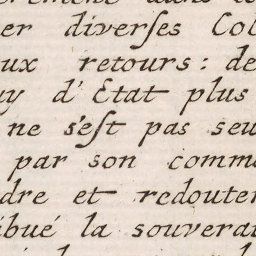 er diverſes Col
ux retours: de
uy d'Etat plus
ne s'eſt pas seu
par son comme
dre et redouter
ibué la souverai